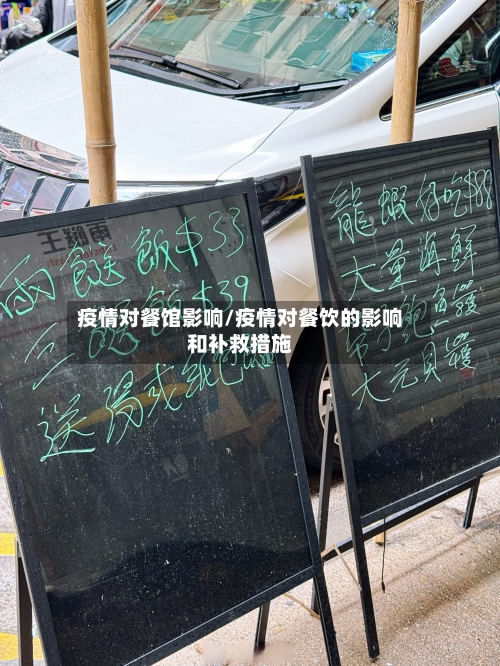 兩餸飯$33
三餸飯$39
送湯或紙包
龍蝦好吃$88
大量海鮮
疫情对餐馆影响/疫情对餐饮的影响
和补救措施
鮑魚
大元貝